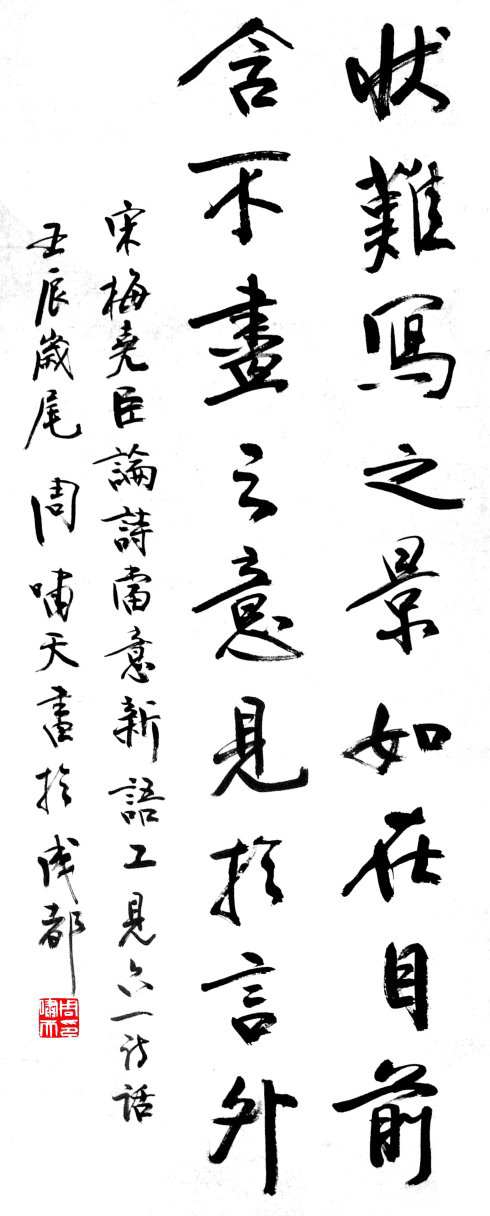 狀難寫之景如在目前
含不盡之意見於言外
宋梅堯臣論詩當意新語工見六一詩話
壬辰歲尾周嘯天書於成都
周嘯天